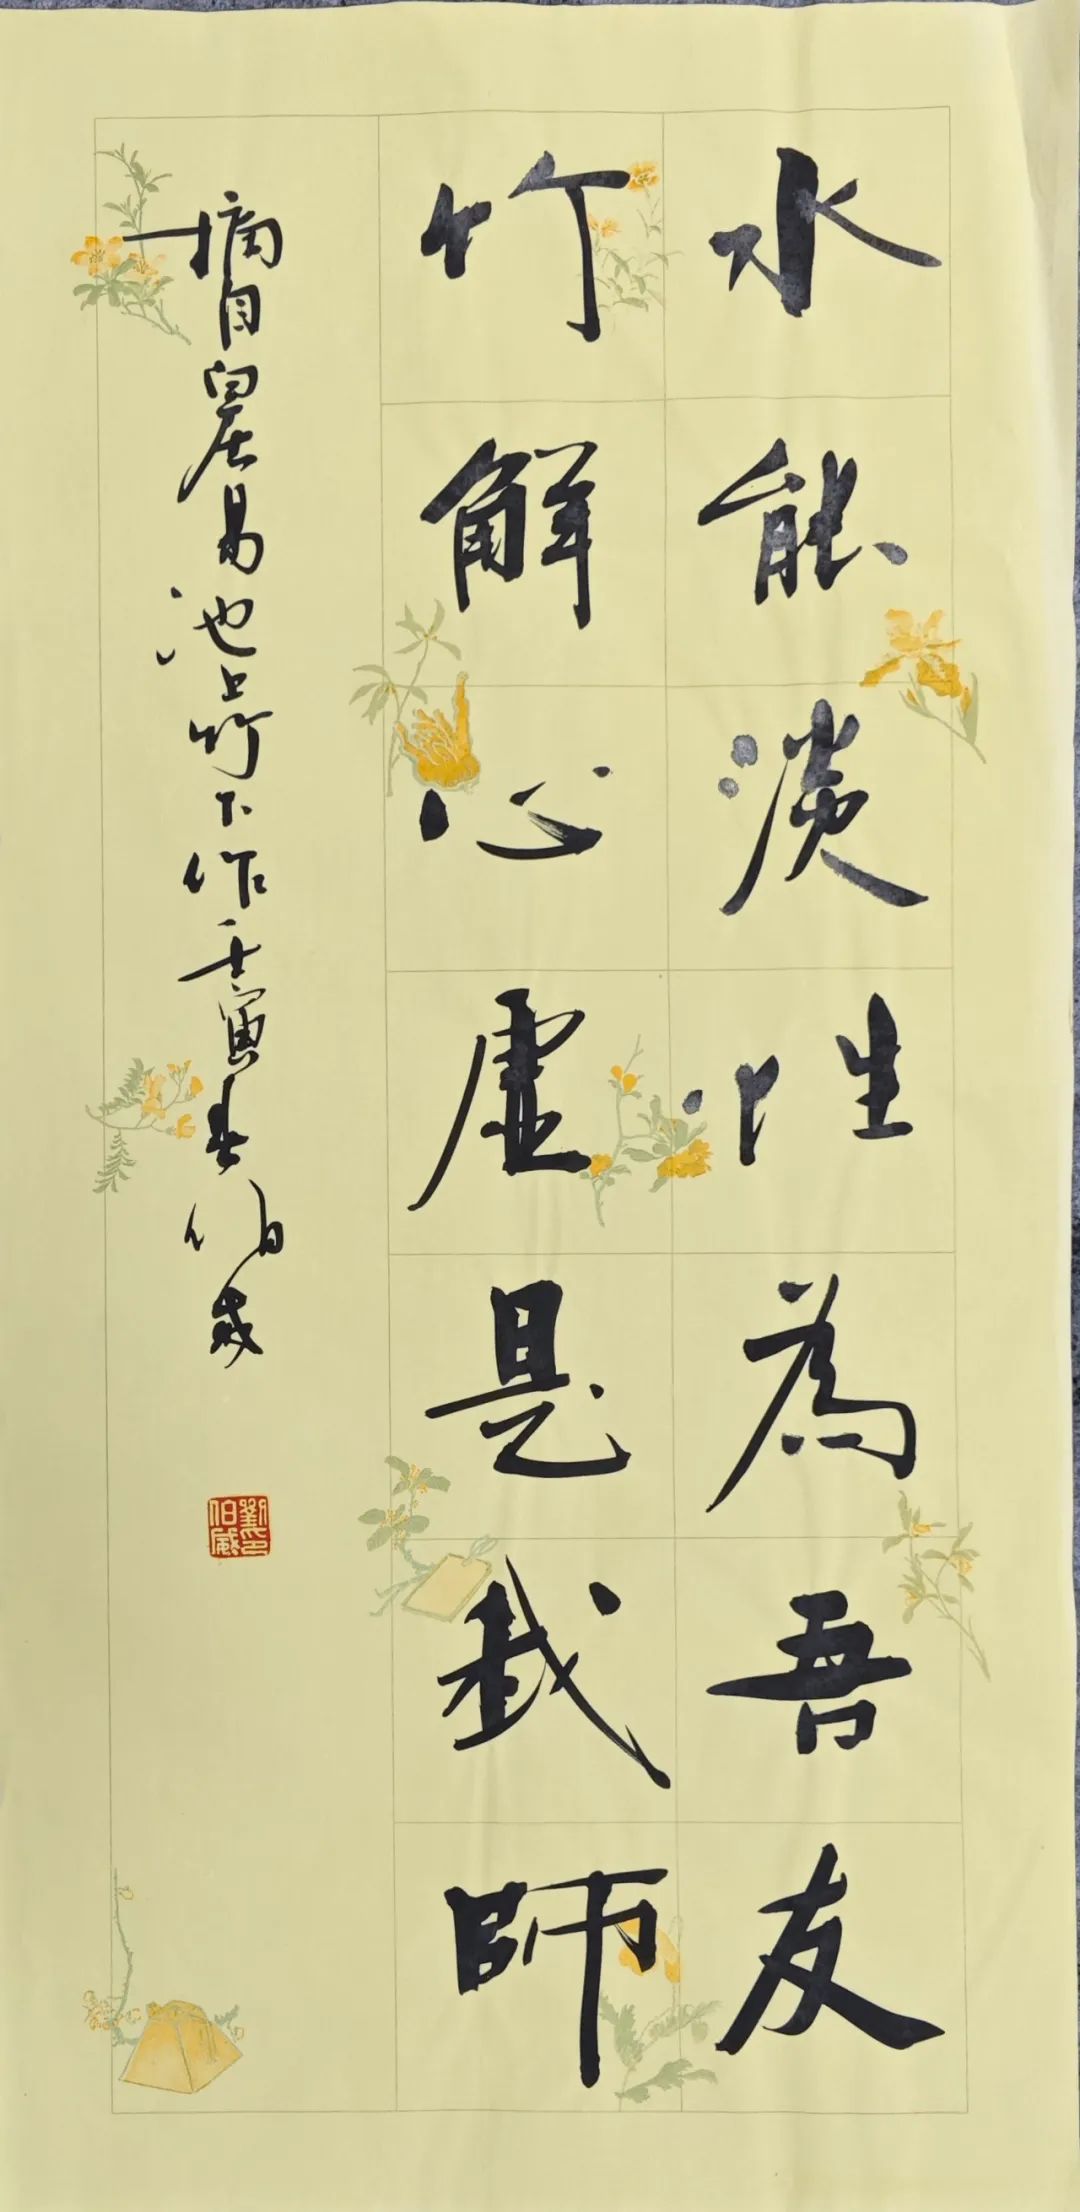 水能淡性為吾友
竹解心虛是我師
摘自白居易池上竹下作壬寅春伯威
劉印伯威